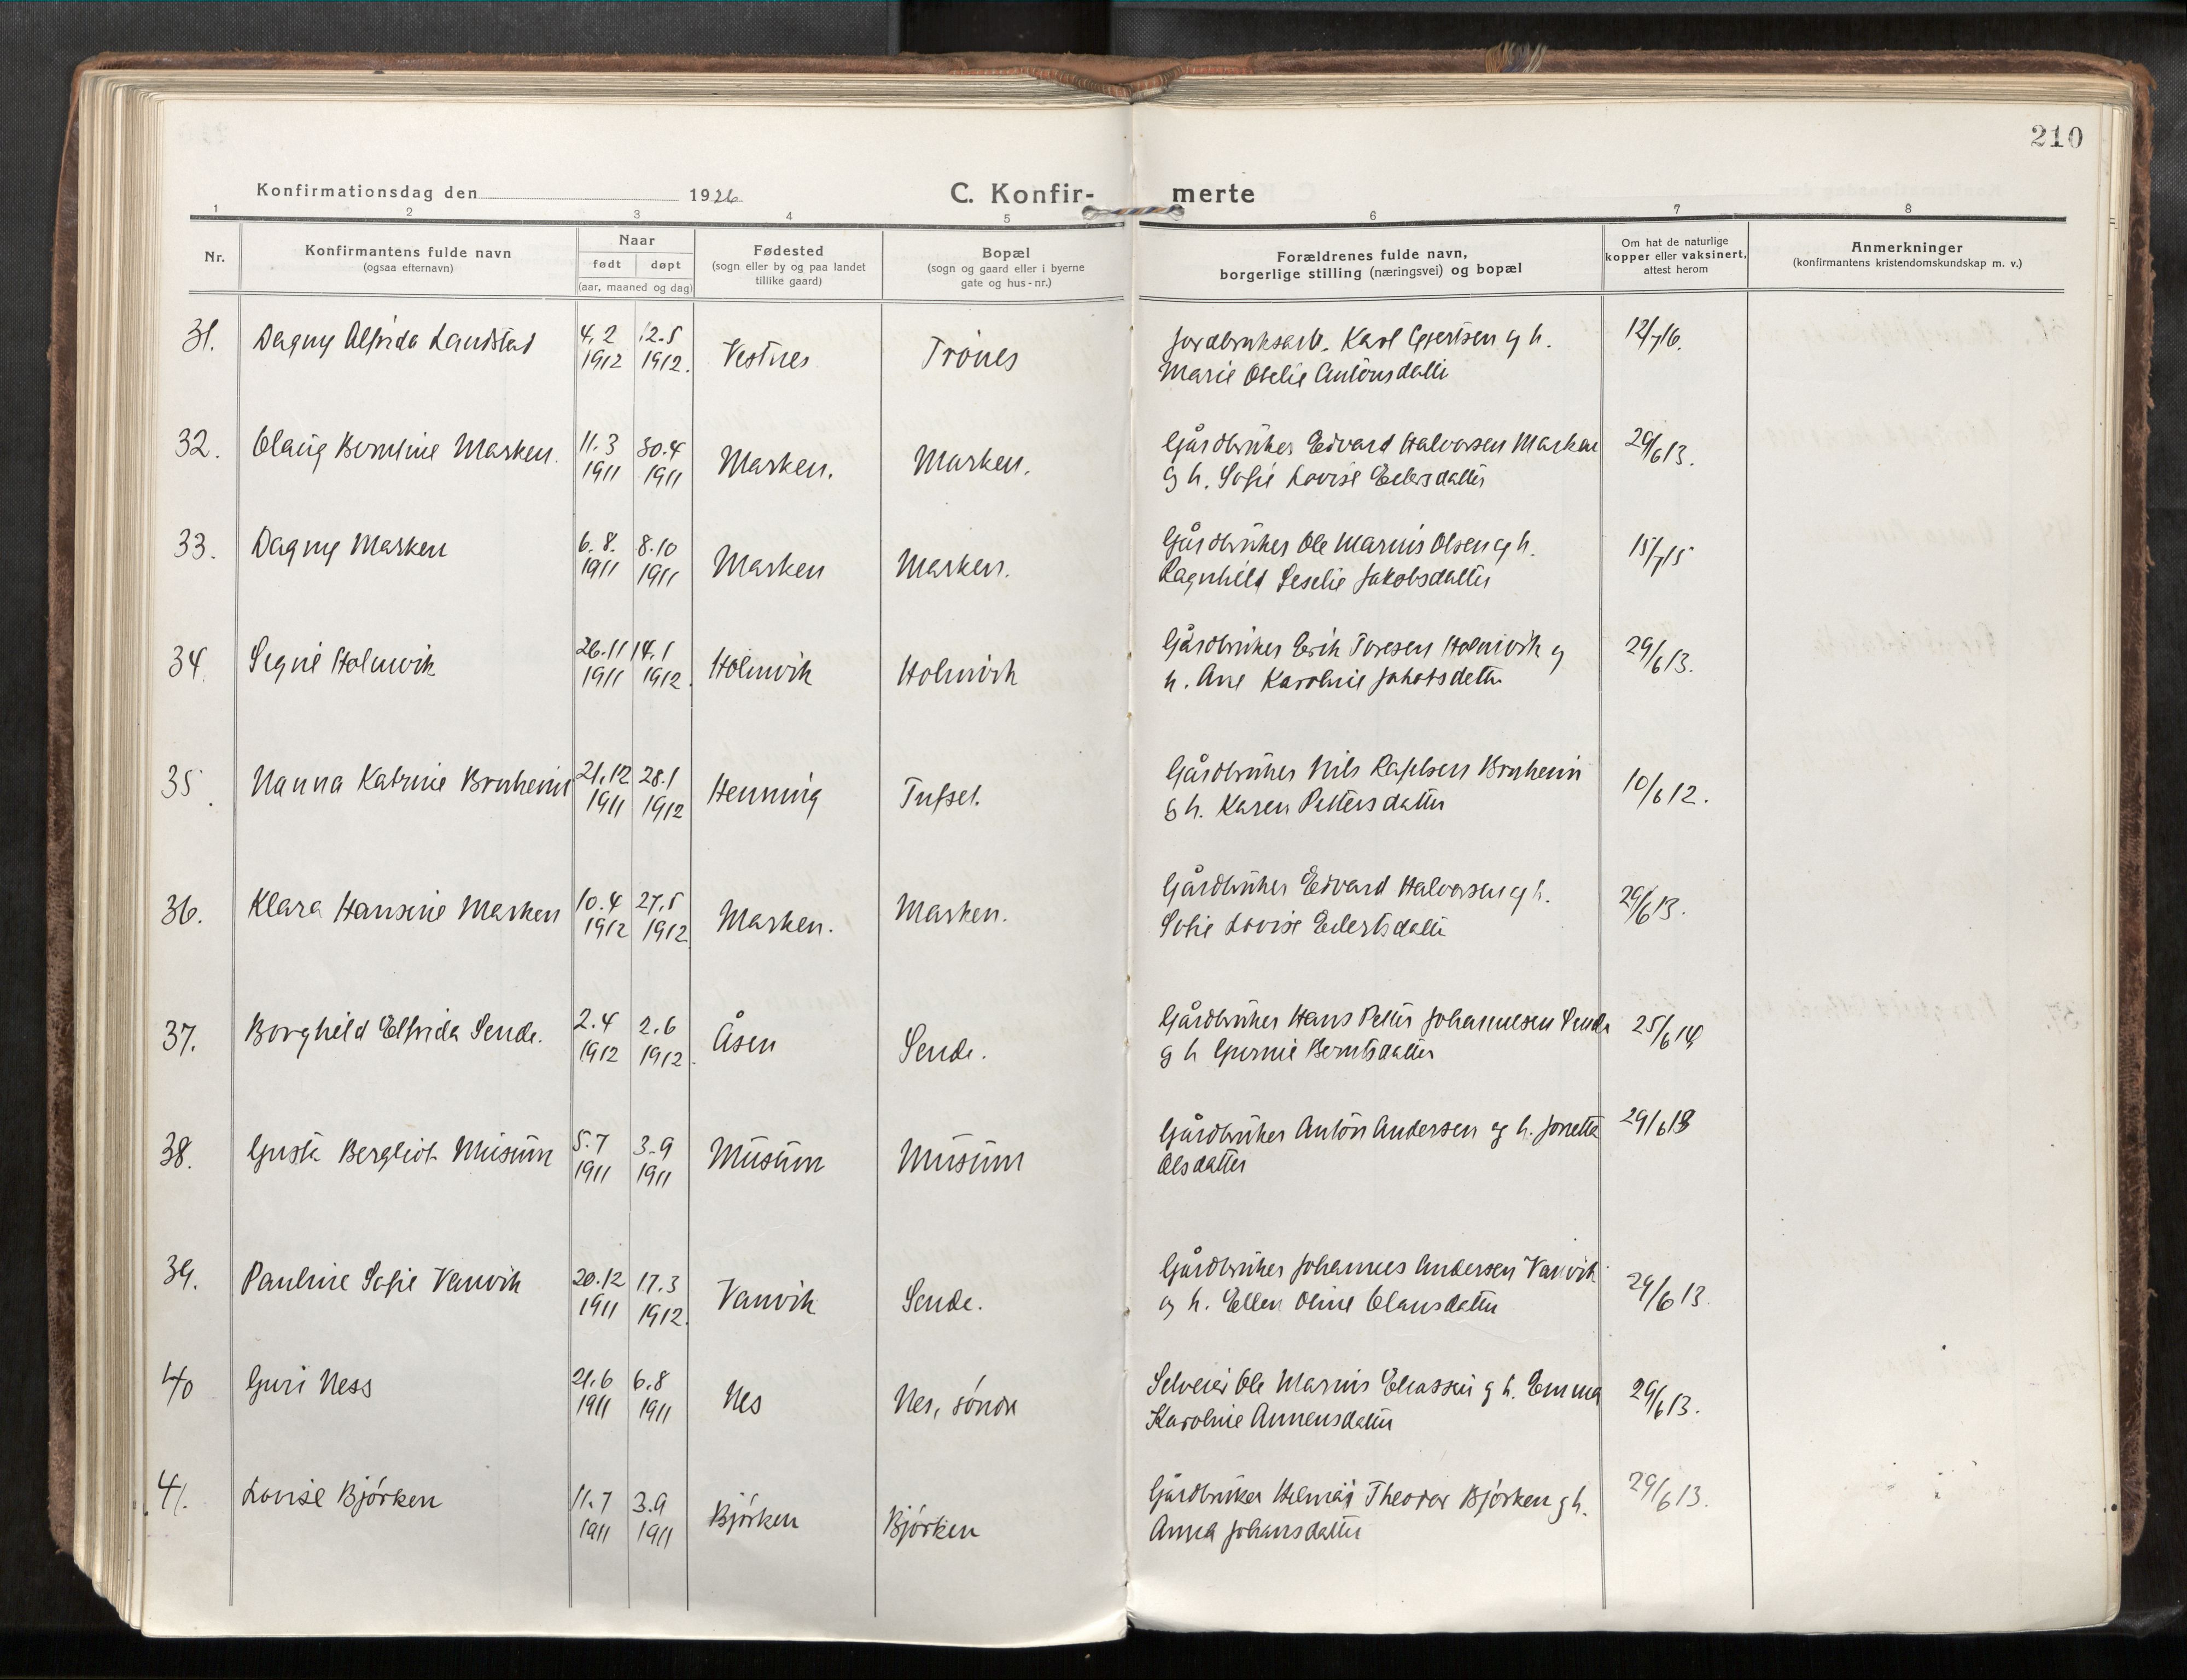 210
Konfirmationsdag den 1926 C. Konfir- merte
1 2 3 4 5 6 7 8
Nr.
Konfirmantens fulde navn
(ogsaa efternavn)
Naar
født døpt
(aar, maaned og dag)
Fødested
(sogn eller by og paa landet
tillike gaard)
Bopæl
(sogn og gaard eller i byerne
gate og hus-nr.)
Forældrenes fulde navn,
borgerlige stilling (næringsvei) og bopæl
Om hat de naturlige
kopper eller vaksinert,
attest herom
Anmerkninger
(konfirmantens kristendomskundskap m. v.)
31. Dagny Alfrida Landstad 4.2 12.5 Vestnes Trönes Jordbruksarb. Karl Gjertsen og h. 12/7 16.
1912 1912. Marie Otelie Antonsdatter
32. Olaug Berntine Marken. 11.3 30.4 Marken. Marken. Gårdbruker Edvard Halvorsen Marken 29/6 13.
1911 1911 og h. Sofie Lovise Eilersdatter
33. Dagny Marken 6.8. 8.10 Marken Marken. Gårdbruker Ole Marius Olsen og h. 15/7 15
1911 1911 Ragnhild Jakobsdatter
34. Signe Holmvik 26.11 14.1 Holmvik Holmvik Gårdbruker Erik Toresen Holmvik og 29/6 13.
1911 1912. h. Ane Karoline Jakobsdatter
35. Nanna Katrine Bruheim 21.12 28.1 Henning Tufset. Gårdbruker Nils Bruheim 10/6 12.
1911 1912 og h. Karen Pettersdatter
36. Klara Hansine Marken 10.4 27.5 Marken. Marken. Gårdbruker Edvard Halvorsen og h. 29/6 13.
1912 1912 Sofie Lovise Eilertsdatter
37. Borghild Elfrida Sende. 2.4 2.6 Åsen Sende. Gårdbruker Hans Petter Johannesen Sende 25/6
1912 1912. og h Berntsdatter
38. Gusta Bergliot Musum 5.7 3.9 Musum Musum Gårdbruker Anton Andersen og h. Jonette 29/6 13
1911 1911 Olsdatter
39. Pauline Sofie Vanvik 20.12 17.3 Vanvik Sende. Gårdbruker Johannes Andersen Vanvik 29/6 13.
1911 1912. og h. Ellen Oline Olausdatter
40 Guri Ness 21.6 6.8 Nes Nes, söndre Selveier Ole Marius Eliassen og h. Emma 29/6 13.
1911 1911 Karoline Annensdatter
41. Lovise Björken 11.7 3.9 Björken Björken Gårdbruker Hilmar Theodor Björken og h. 29/6 13.
1911 1911 Anna Johansdatter